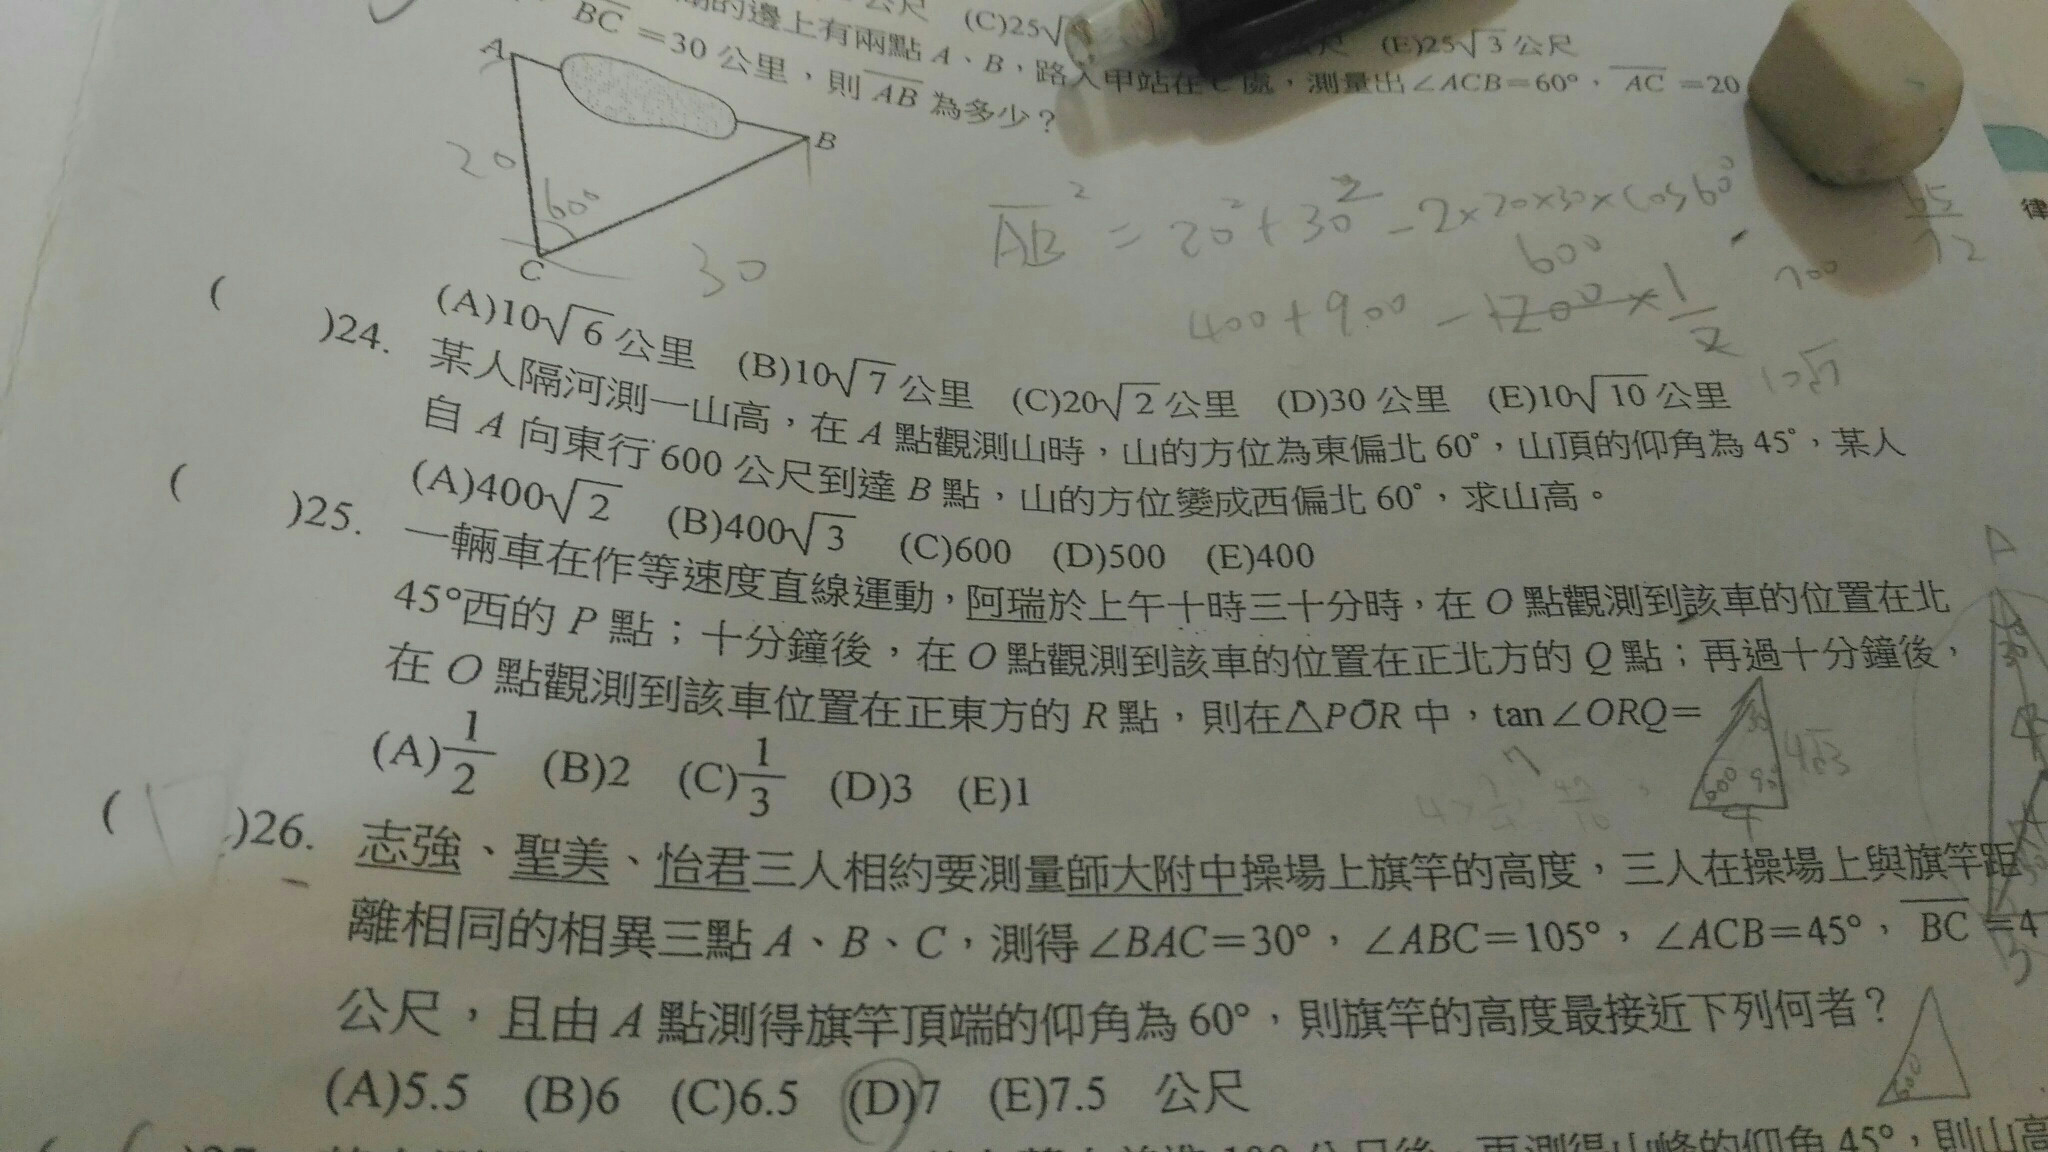 公尺 (C)25√ 公尺 (E)25√3 公尺
的邊上有兩點 A、B,路人甲站在 C 處,測量出∠ACB=60°、AC=20
BC=30 公里,則 AB 為多少?
A
B
C
20
60°
30
AB² = 20² + 30² - 2×20×30×cos60°
600
400+900-1200×1/2
700
10√7
65/72
律
(A)10√6 公里 (B)10√7 公里 (C)20√2 公里 (D)30 公里 (E)10√10 公里
( )24. 某人隔河測一山高,在 A 點觀測山時,山的方位為東偏北 60°,山頂的仰角為 45°,某人
自 A 向東行 600 公尺到達 B 點,山的方位變成西偏北 60°,求山高。
(A)400√2 (B)400√3 (C)600 (D)500 (E)400
( )25. 一輛車在作等速度直線運動,阿瑞於上午十時三十分時,在 O 點觀測到該車的位置在北
45°西的 P 點;十分鐘後,在 O 點觀測到該車的位置在正北方的 Q 點;再過十分鐘後,
在 O 點觀測到該車位置在正東方的 R 點,則在△POR 中,tan∠ORQ=
(A)1/2 (B)2 (C)1/3 (D)3 (E)1
30
60° 90°
4√3
4
( )26. 志強、聖美、怡君三人相約要測量師大附中操場上旗竿的高度,三人在操場上與旗竿距
離相同的相異三點 A、B、C,測得∠BAC=30°,∠ABC=105°,∠ACB=45°,BC=4
公尺,且由 A 點測得旗竿頂端的仰角為 60°,則旗竿的高度最接近下列何者?
60°
(A)5.5 (B)6 (C)6.5 (D)7 (E)7.5 公尺
100 公尺後,再測得山峰的仰角 45°,則山高